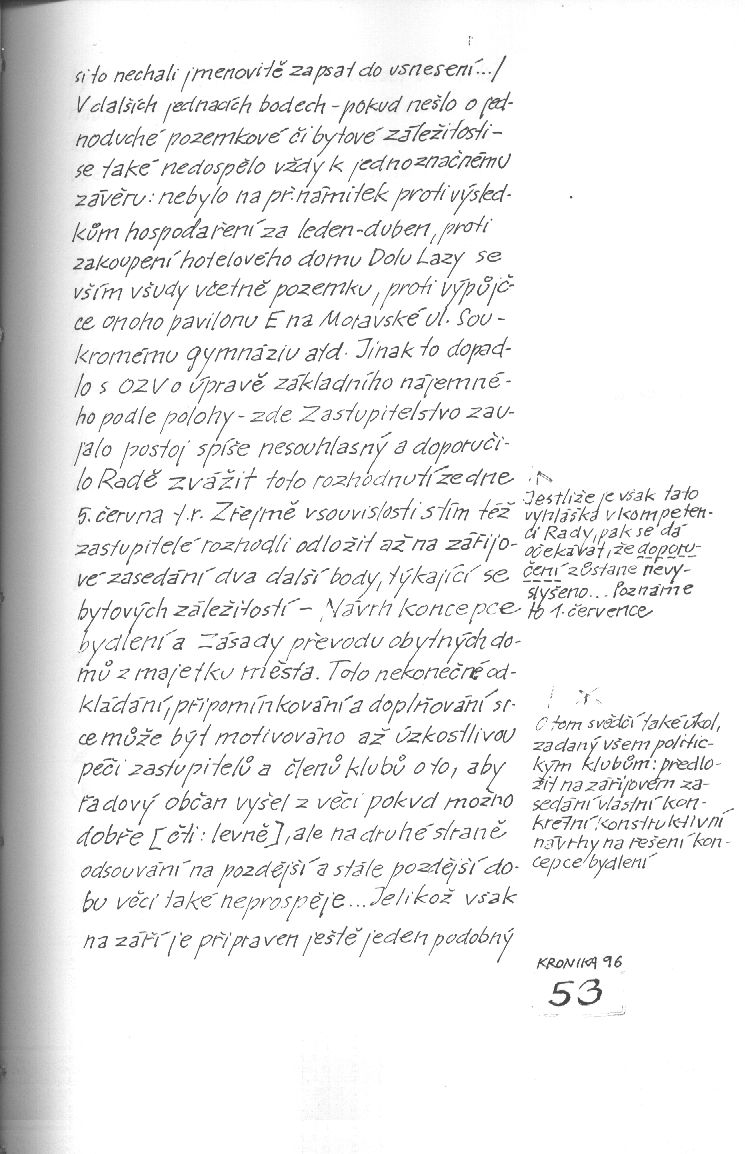 si to nechali jmenovitě zapsat do usnesení.../
V dalších jednacích bodech - pokud nešlo o jed-
noduché pozemkové či bytové záležitosti -
se také nedospělo vždy k jednoznačnému
závěru: nebylo na př. námitek proti výsled-
kům hospodaření za leden-duben, proti
zakoupení hotelového domu Dolu Lazy se
vším všudy včetně pozemku, proti výpůjč-
ce onoho pavilonu E na Moravské ul. Sou-
kromému gymnáziu atd. Jinak to dopad-
lo s OZV o úpravě základního nájemné-
ho podle polohy - zde Zastupitelstvo zau-
jalo postoj spíše nesouhlasný a doporuči-
lo Radě zvážit toto rozhodnutí ze dne
5. června t.r. Zřejmě v souvislosti s tím též
zastupitelé rozhodli odložit až na zářijo-
vé zasedání dva další body, týkající se
bytových záležitostí - Návrh koncepce
bydlení a Zásady převodu obytných do-
mů z majetku města. Toto nekonečné od-
kládání, připomínkování a doplňování si-
ce může být motivováno až úzkostlivou
péčí zastupitelů a členů klubů o to, aby
řadový občan vyšel z věci pokud možno
dobře [čti: levně], ale na druhé straně
odsouvání na pozdější a stále pozdější do-
bu věci také neprospěje... Jelikož však
na září je připraven ještě jeden podobný
Jestliže je však tato
vyhláška v kompeten-
ci Rady, pak se dá
očekávat, že doporu-
čení zůstane nevy-
slyšeno... Poznáme
to 1. července
O tom svědčí také úkol,
zadaný všem politic-
kým klubům: předlo-
žit na zářijovém za-
sedání vlastní kon-
krétní konstruktivní
návrhy na řešení kon-
cepce bydlení
KRONIKA 96
53